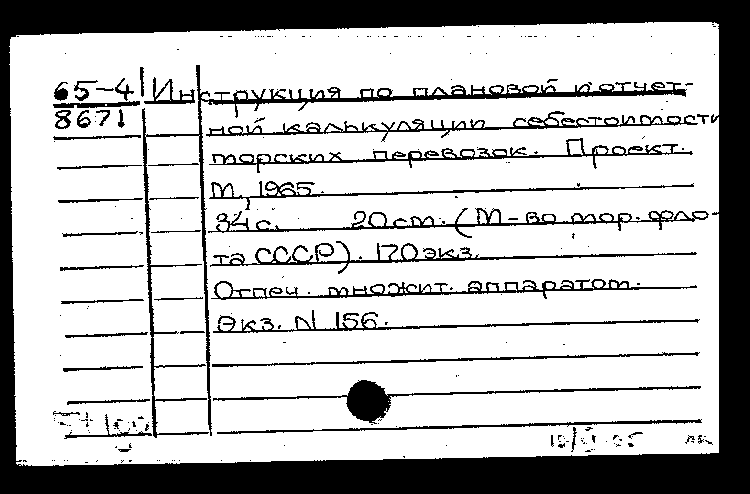 65-4 Инструкция по плановой и отчет-
8671 ной калькуляции себестоимости
морских перевозок. Проект.
М., 1965.
34 с. 20 см. (М-во мор. фло-
та СССР). 170 экз.
Отпеч. множит. аппаратом.
Экз. N 156.